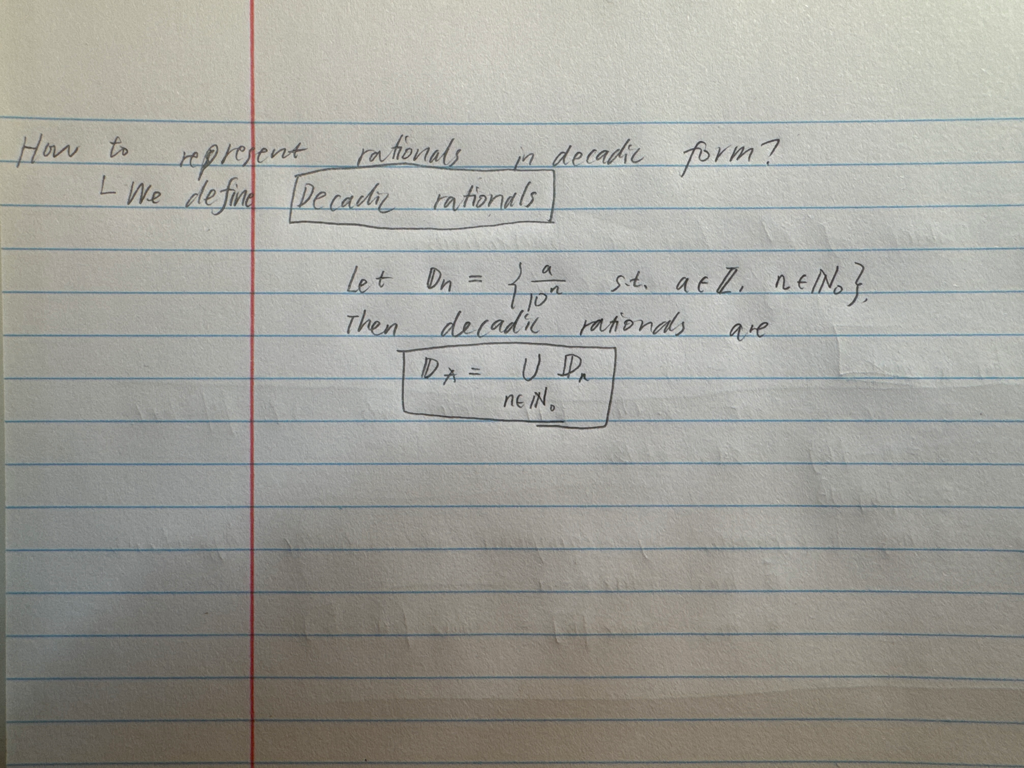 How to represent rationals in decadic form?
└ We define Decadic rationals
Let 𝔻n = { a/10^n s.t. a ∈ ℤ, n ∈ ℕ₀ }.
Then decadic rationals are
𝔻* = ∪ 𝔻n
n ∈ ℕ₀